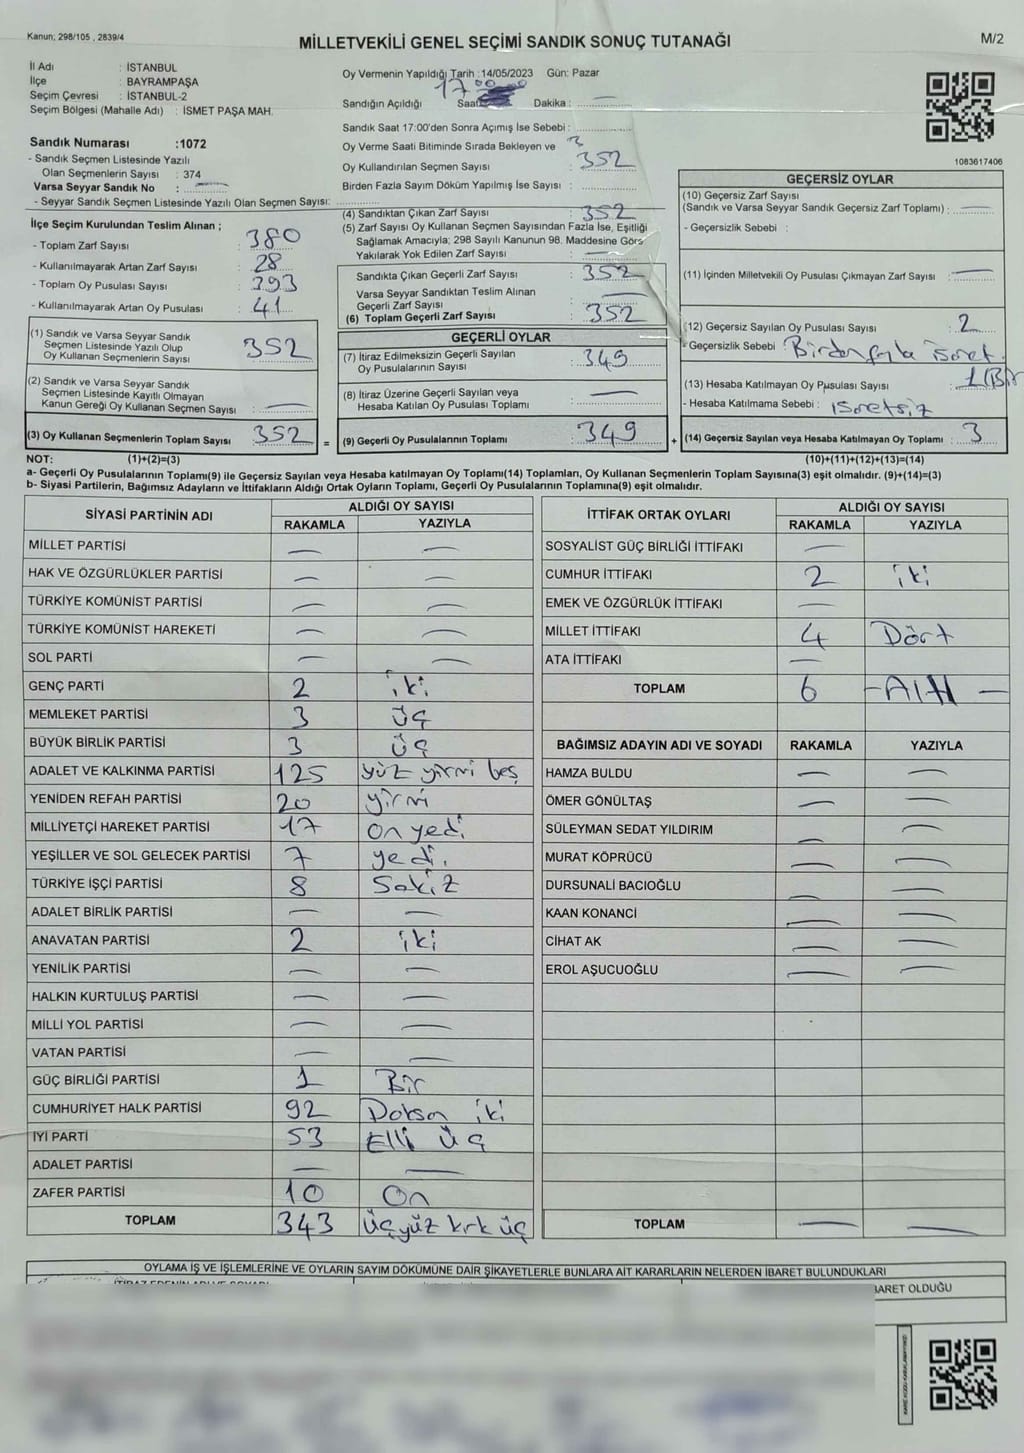 Kanun; 298/105 , 2839/4
MİLLETVEKİLİ GENEL SEÇİMİ SANDIK SONUÇ TUTANAĞI
M/2
İl Adı : İSTANBUL
İlçe : BAYRAMPAŞA
Seçim Çevresi : İSTANBUL-2
Seçim Bölgesi (Mahalle Adı) : İSMET PAŞA MAH.
Sandık Numarası :1072
- Sandık Seçmen Listesinde Yazılı
Olan Seçmenlerin Sayısı : 374
Varsa Seyyar Sandık No : —
- Seyyar Sandık Seçmen Listesinde Yazılı Olan Seçmen Sayısı:
Oy Vermenin Yapıldığı Tarih :14/05/2023 Gün: Pazar
Sandığın Açıldığı Saat 17 00 Dakika : —
Sandık Saat 17:00'den Sonra Açımış İse Sebebi :
Oy Verme Saati Bitiminde Sırada Bekleyen ve 3
Oy Kullandırılan Seçmen Sayısı : 352
Birden Fazla Sayım Döküm Yapılmış İse Sayısı :
1083617406
İlçe Seçim Kurulundan Teslim Alınan ;
- Toplam Zarf Sayısı : 380
- Kullanılmayarak Artan Zarf Sayısı : 28
- Toplam Oy Pusulası Sayısı : 393
- Kullanılmayarak Artan Oy Pusulası : 41
(1) Sandık ve Varsa Seyyar Sandık
Seçmen Listesinde Yazılı Olup
Oy Kullanan Seçmenlerin Sayısı : 352
(2) Sandık ve Varsa Seyyar Sandık
Seçmen Listesinde Kayıtlı Olmayan
Kanun Gereği Oy Kullanan Seçmen Sayısı : —
(3) Oy Kullanan Seçmenlerin Toplam Sayısı 352 =
(4) Sandıktan Çıkan Zarf Sayısı : 352
(5) Zarf Sayısı Oy Kullanan Seçmen Sayısından Fazla İse, Eşitliği
Sağlamak Amacıyla; 298 Sayılı Kanunun 98. Maddesine Göre
Yakılarak Yok Edilen Zarf Sayısı : —
Sandıkta Çıkan Geçerli Zarf Sayısı : 352
Varsa Seyyar Sandıktan Teslim Alınan
Geçerli Zarf Sayısı : —
(6) Toplam Geçerli Zarf Sayısı : 352
GEÇERLİ OYLAR
(7) İtiraz Edilmeksizin Geçerli Sayılan
Oy Pusulalarının Sayısı : 349
(8) İtiraz Üzerine Geçerli Sayılan veya
Hesaba Katılan Oy Pusulası Toplamı : —
(9) Geçerli Oy Pusulalarının Toplamı : 349 +
GEÇERSİZ OYLAR
(10) Geçersiz Zarf Sayısı
(Sandık ve Varsa Seyyar Sandık Geçersiz Zarf Toplamı) : —
- Geçersizlik Sebebi :
(11) İçinden Milletvekili Oy Pusulası Çıkmayan Zarf Sayısı : —
(12) Geçersiz Sayılan Oy Pusulası Sayısı : 2
- Geçersizlik Sebebi : Birden fazla işaret
(13) Hesaba Katılmayan Oy Pusulası Sayısı : 1 (Bir
- Hesaba Katılmama Sebebi : işaretsiz
(14) Geçersiz Sayılan veya Hesaba Katılmayan Oy Toplamı : 3
NOT: (1)+(2)=(3) (10)+(11)+(12)+(13)=(14)
a- Geçerli Oy Pusulalarının Toplamı(9) ile Geçersiz Sayılan veya Hesaba katılmayan Oy Toplamı(14) Toplamları, Oy Kullanan Seçmenlerin Toplam Sayısına(3) eşit olmalıdır. (9)+(14)=(3)
b- Siyasi Partilerin, Bağımsız Adayların ve İttifakların Aldığı Ortak Oyların Toplamı, Geçerli Oy Pusulalarının Toplamına(9) eşit olmalıdır.
SİYASİ PARTİNİN ADI ALDIĞI OY SAYISI
RAKAMLA YAZIYLA
MİLLET PARTİSİ — —
HAK VE ÖZGÜRLÜKLER PARTİSİ — —
TÜRKİYE KOMÜNİST PARTİSİ — —
TÜRKİYE KOMÜNİST HAREKETİ — —
SOL PARTİ — —
GENÇ PARTİ 2 iki
MEMLEKET PARTİSİ 3 üç
BÜYÜK BİRLİK PARTİSİ 3 üç
ADALET VE KALKINMA PARTİSİ 125 yüz yirmi beş
YENİDEN REFAH PARTİSİ 20 yirmi
MİLLİYETÇİ HAREKET PARTİSİ 17 On yedi
YEŞİLLER VE SOL GELECEK PARTİSİ 7 yedi
TÜRKİYE İŞÇİ PARTİSİ 8 Sekiz
ADALET BİRLİK PARTİSİ — —
ANAVATAN PARTİSİ 2 iki
YENİLİK PARTİSİ — —
HALKIN KURTULUŞ PARTİSİ — —
MİLLİ YOL PARTİSİ — —
VATAN PARTİSİ — —
GÜÇ BİRLİĞİ PARTİSİ 1 Bir
CUMHURİYET HALK PARTİSİ 92 Doksan iki
İYİ PARTİ 53 Elli üç
ADALET PARTİSİ — —
ZAFER PARTİSİ 10 On
TOPLAM 343 üçyüz kırk üç
İTTİFAK ORTAK OYLARI ALDIĞI OY SAYISI
RAKAMLA YAZIYLA
SOSYALİST GÜÇ BİRLİĞİ İTTİFAKI —
CUMHUR İTTİFAKI 2 iki
EMEK VE ÖZGÜRLÜK İTTİFAKI —
MİLLET İTTİFAKI 4 Dört
ATA İTTİFAKI —
TOPLAM 6 -Altı-
BAĞIMSIZ ADAYIN ADI VE SOYADI RAKAMLA YAZIYLA
HAMZA BULDU — —
ÖMER GÖNÜLTAŞ — —
SÜLEYMAN SEDAT YILDIRIM — —
MURAT KÖPRÜCÜ — —
DURSUNALİ BACIOĞLU — —
KAAN KONANCİ — —
CİHAT AK — —
EROL AŞUCUOĞLU — —
TOPLAM — —
OYLAMA İŞ VE İŞLEMLERİNE VE OYLARIN SAYIM DÖKÜMÜNE DAİR ŞİKAYETLERLE BUNLARA AİT KARARLARIN NELERDEN İBARET BULUNDUKLARI
İTİRAZ EDENİN ADI VE SOYADI
BARET OLDUĞU